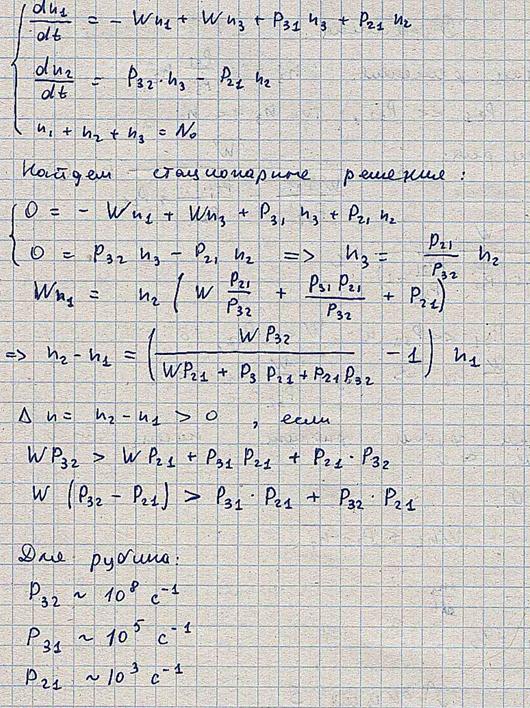 dn₁/dt = - Wn₁ + Wn₃ + P₃₁ n₃ + P₂₁ n₂
dn₂/dt = P₃₂·n₃ - P₂₁ n₂
n₁ + n₂ + n₃ = N₀
Найдем стационарные решения:
0 = - Wn₁ + Wn₃ + P₃₁ n₃ + P₂₁ n₂
0 = P₃₂ n₃ - P₂₁ n₂ => n₃ = P₂₁/P₃₂ n₂
Wn₁ = n₂ (W P₂₁/P₃₂ + P₃₁ P₂₁/P₃₂ + P₂₁)
=> n₂ - n₁ = (W P₃₂/(WP₂₁ + P₃ P₂₁ + P₂₁P₃₂) - 1) n₁
Δ n = n₂ - n₁ > 0 , если
WP₃₂ > WP₂₁ + P₃₁ P₂₁ + P₂₁·P₃₂
W (P₃₂ - P₂₁) > P₃₁·P₂₁ + P₃₂·P₂₁
Для рубина:
P₃₂ ~ 10⁸ с⁻¹
P₃₁ ~ 10⁵ с⁻¹
P₂₁ ~ 10³ с⁻¹